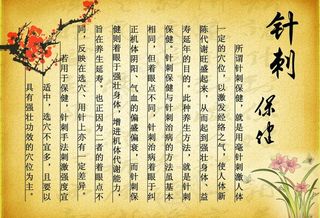 针刺 保健
所谓针刺保健，就是用毫针刺激人体
一定的穴位，以激发经络之气，使人体新
陈代谢旺盛起来，从而起到强壮身体、益
寿延年的目的。此种养生方法，就是针刺
保健。针刺保健与针刺治病的方法虽基本
相同，但着眼点不同，针刺治病着眼于纠
正机体阴阳、气血的偏盛偏衰，而针刺保
健则着眼于强壮身体，增进机体代谢能力，
旨在养生延寿，也正因为二者的着眼点不
同，反映在选穴、用针上亦有一定差异。
若用于保健，针刺手法刺激强度宜
适中，选穴不宜多，且要以
具有强壮功效的穴位为主。